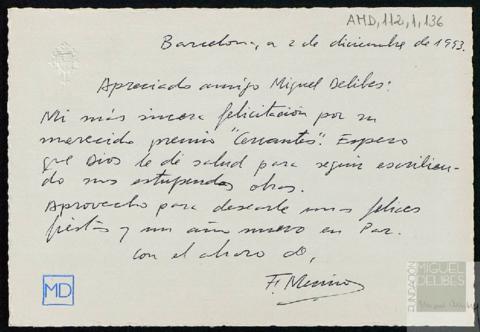 AMD,112,1,136
Barcelona, a 2 de diciembre de 1993.
Apreciado amigo Miguel Delibes:
Mi más sincera felicitación por su
merecido premio "Cervantes". Espero
que Dios le dé salud para seguir escribien-
do sus estupendas obras.
Aprovecho para desearle unas felices
fiestas y un año nuevo en Paz.
con el abrazo de,
F. Merino
MD
FUNDACIÓN
MIGUEL
DELIBES